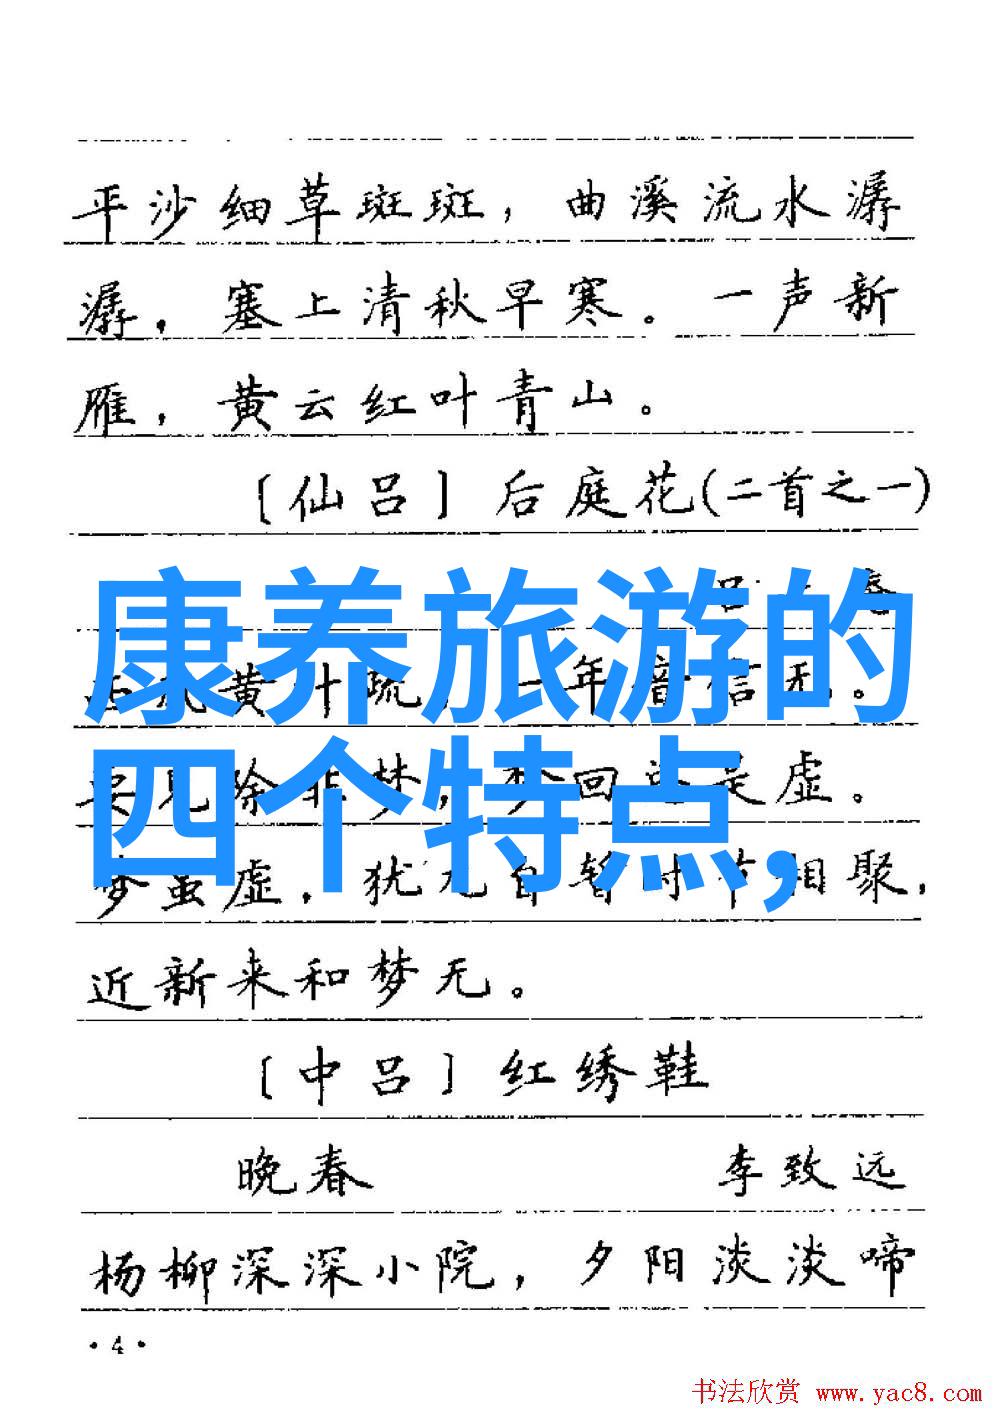 平沙细草斑斑，曲溪流水潺
潺，塞上清秋早寒。一声新
雁，黄云红叶青山。
〔仙吕〕后庭花(二首之一)
康养旅游的
黄叶疏，一年音信无。
四个特点,
要见除非梦，梦回是虚。
梦虽虚，犹兀自暂时节相聚，
近新来和梦无。
〔中吕〕红绣鞋
晚春 李致远
杨柳深深小院，夕阳淡淡啼
·4·
书法欣赏 www.yac8.com